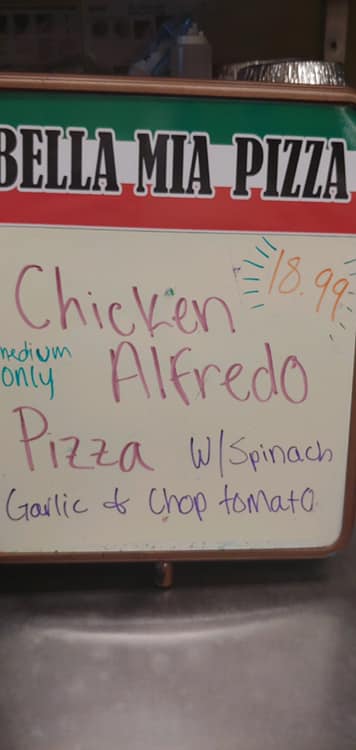 BELLA MIA PIZZA
18.99
Chicken
medium
only
Alfredo
Pizza w/Spinach
Garlic & Chop tomato